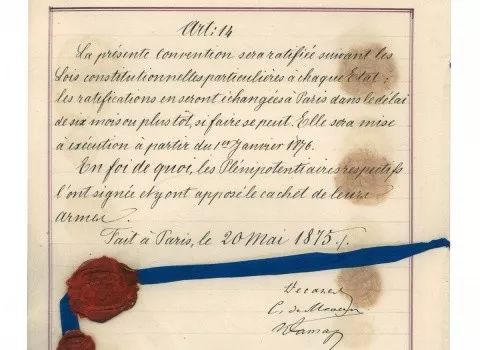 Art: 14
La présente Convention sera ratifiée suivant les
Lois constitutionnelles particulières à chaque Etat ;
les ratifications en seront échangées à Paris dans le délai
de six mois ou plus tôt, si faire se peut. Elle sera mise
à exécution à partir du 1er Janvier 1876.
En foi de quoi, les Plénipotentiaires respectifs
l'ont signée et y ont apposé le cachet de leurs
armes.
Fait à Paris, le 20 Mai 1875 ./.
Decazes